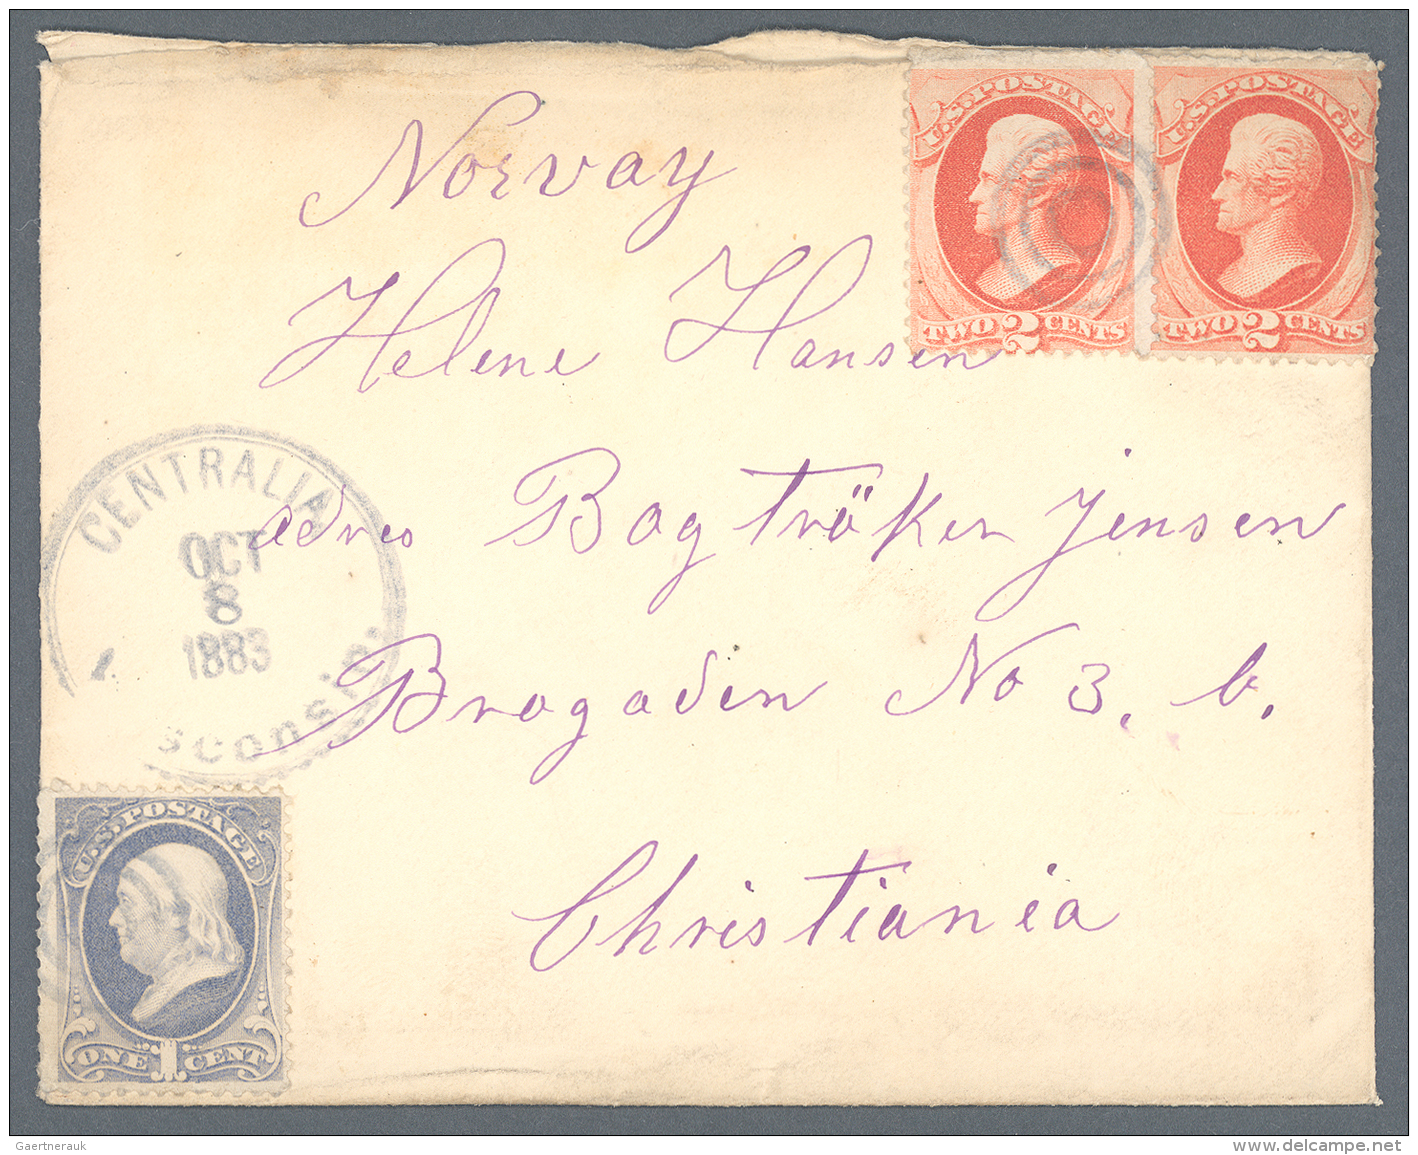 Norway
Helene Hansen
adres Bogtröker Jensen
Brogaden No 3. b.
Christiania
U.S. POSTAGE
TWO 2 CENTS
U.S. POSTAGE
TWO 2 CENTS
CENTRALIA
OCT
8
1883
sconsin.
U.S. POSTAGE
ONE 1 CENT
Gaertnerauk
www.delcampe.net